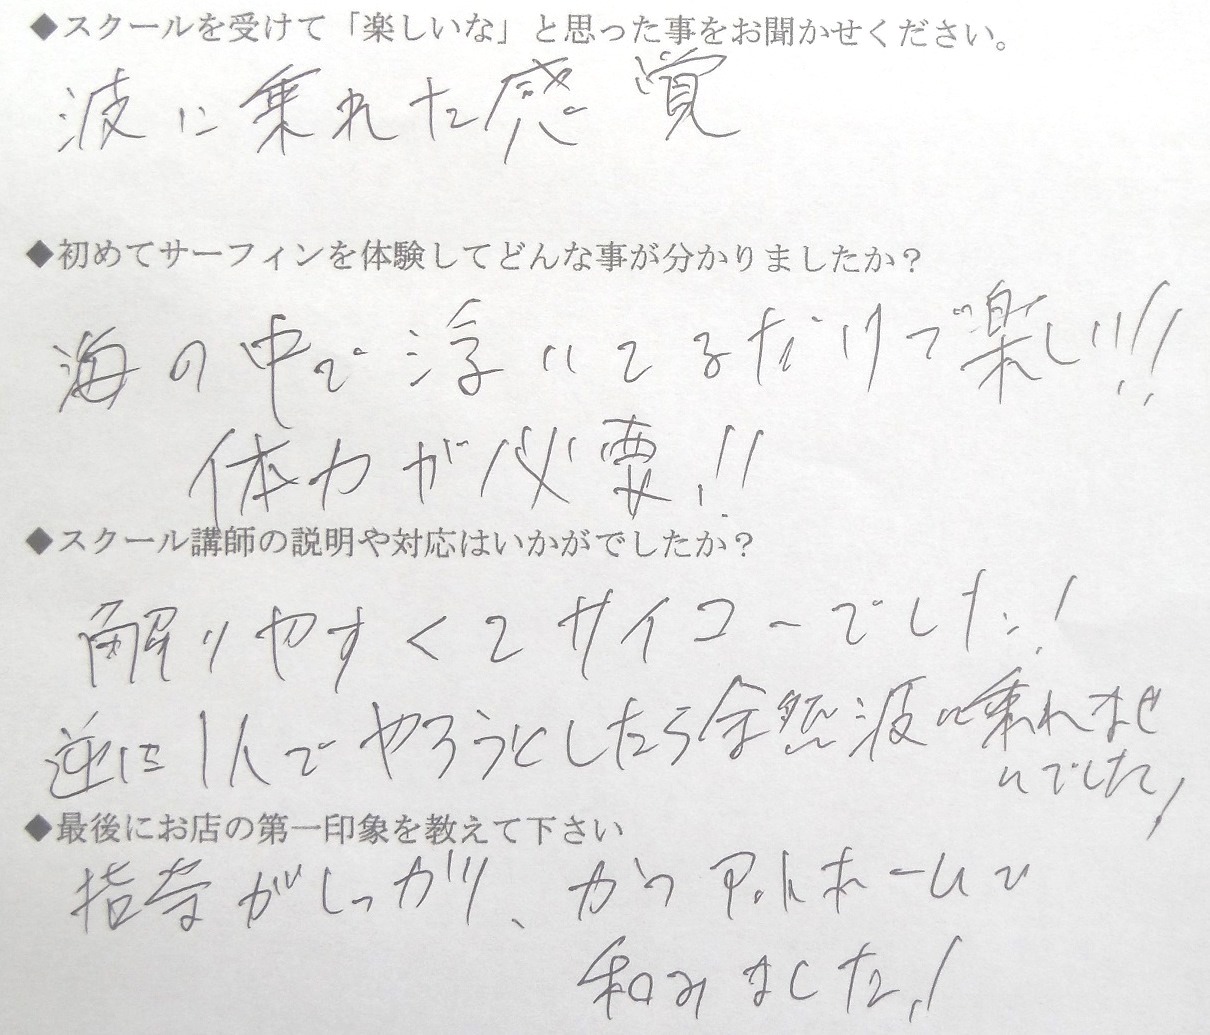 ◆スクールを受けて「楽しいな」と思った事をお聞かせください。
波に乗れた感覚
◆初めてサーフィンを体験してどんな事が分かりましたか？
海の中で浮いてるだけで楽しい!!
体力が必要!!
◆スクール講師の説明や対応はいかがでしたか？
解りやすくてサイコーでした!
逆に1人でやろうとしたら全然波に乗れませ
んでした!
◆最後にお店の第一印象を教えて下さい
指導がしっかり、かつアットホームで
和みました!